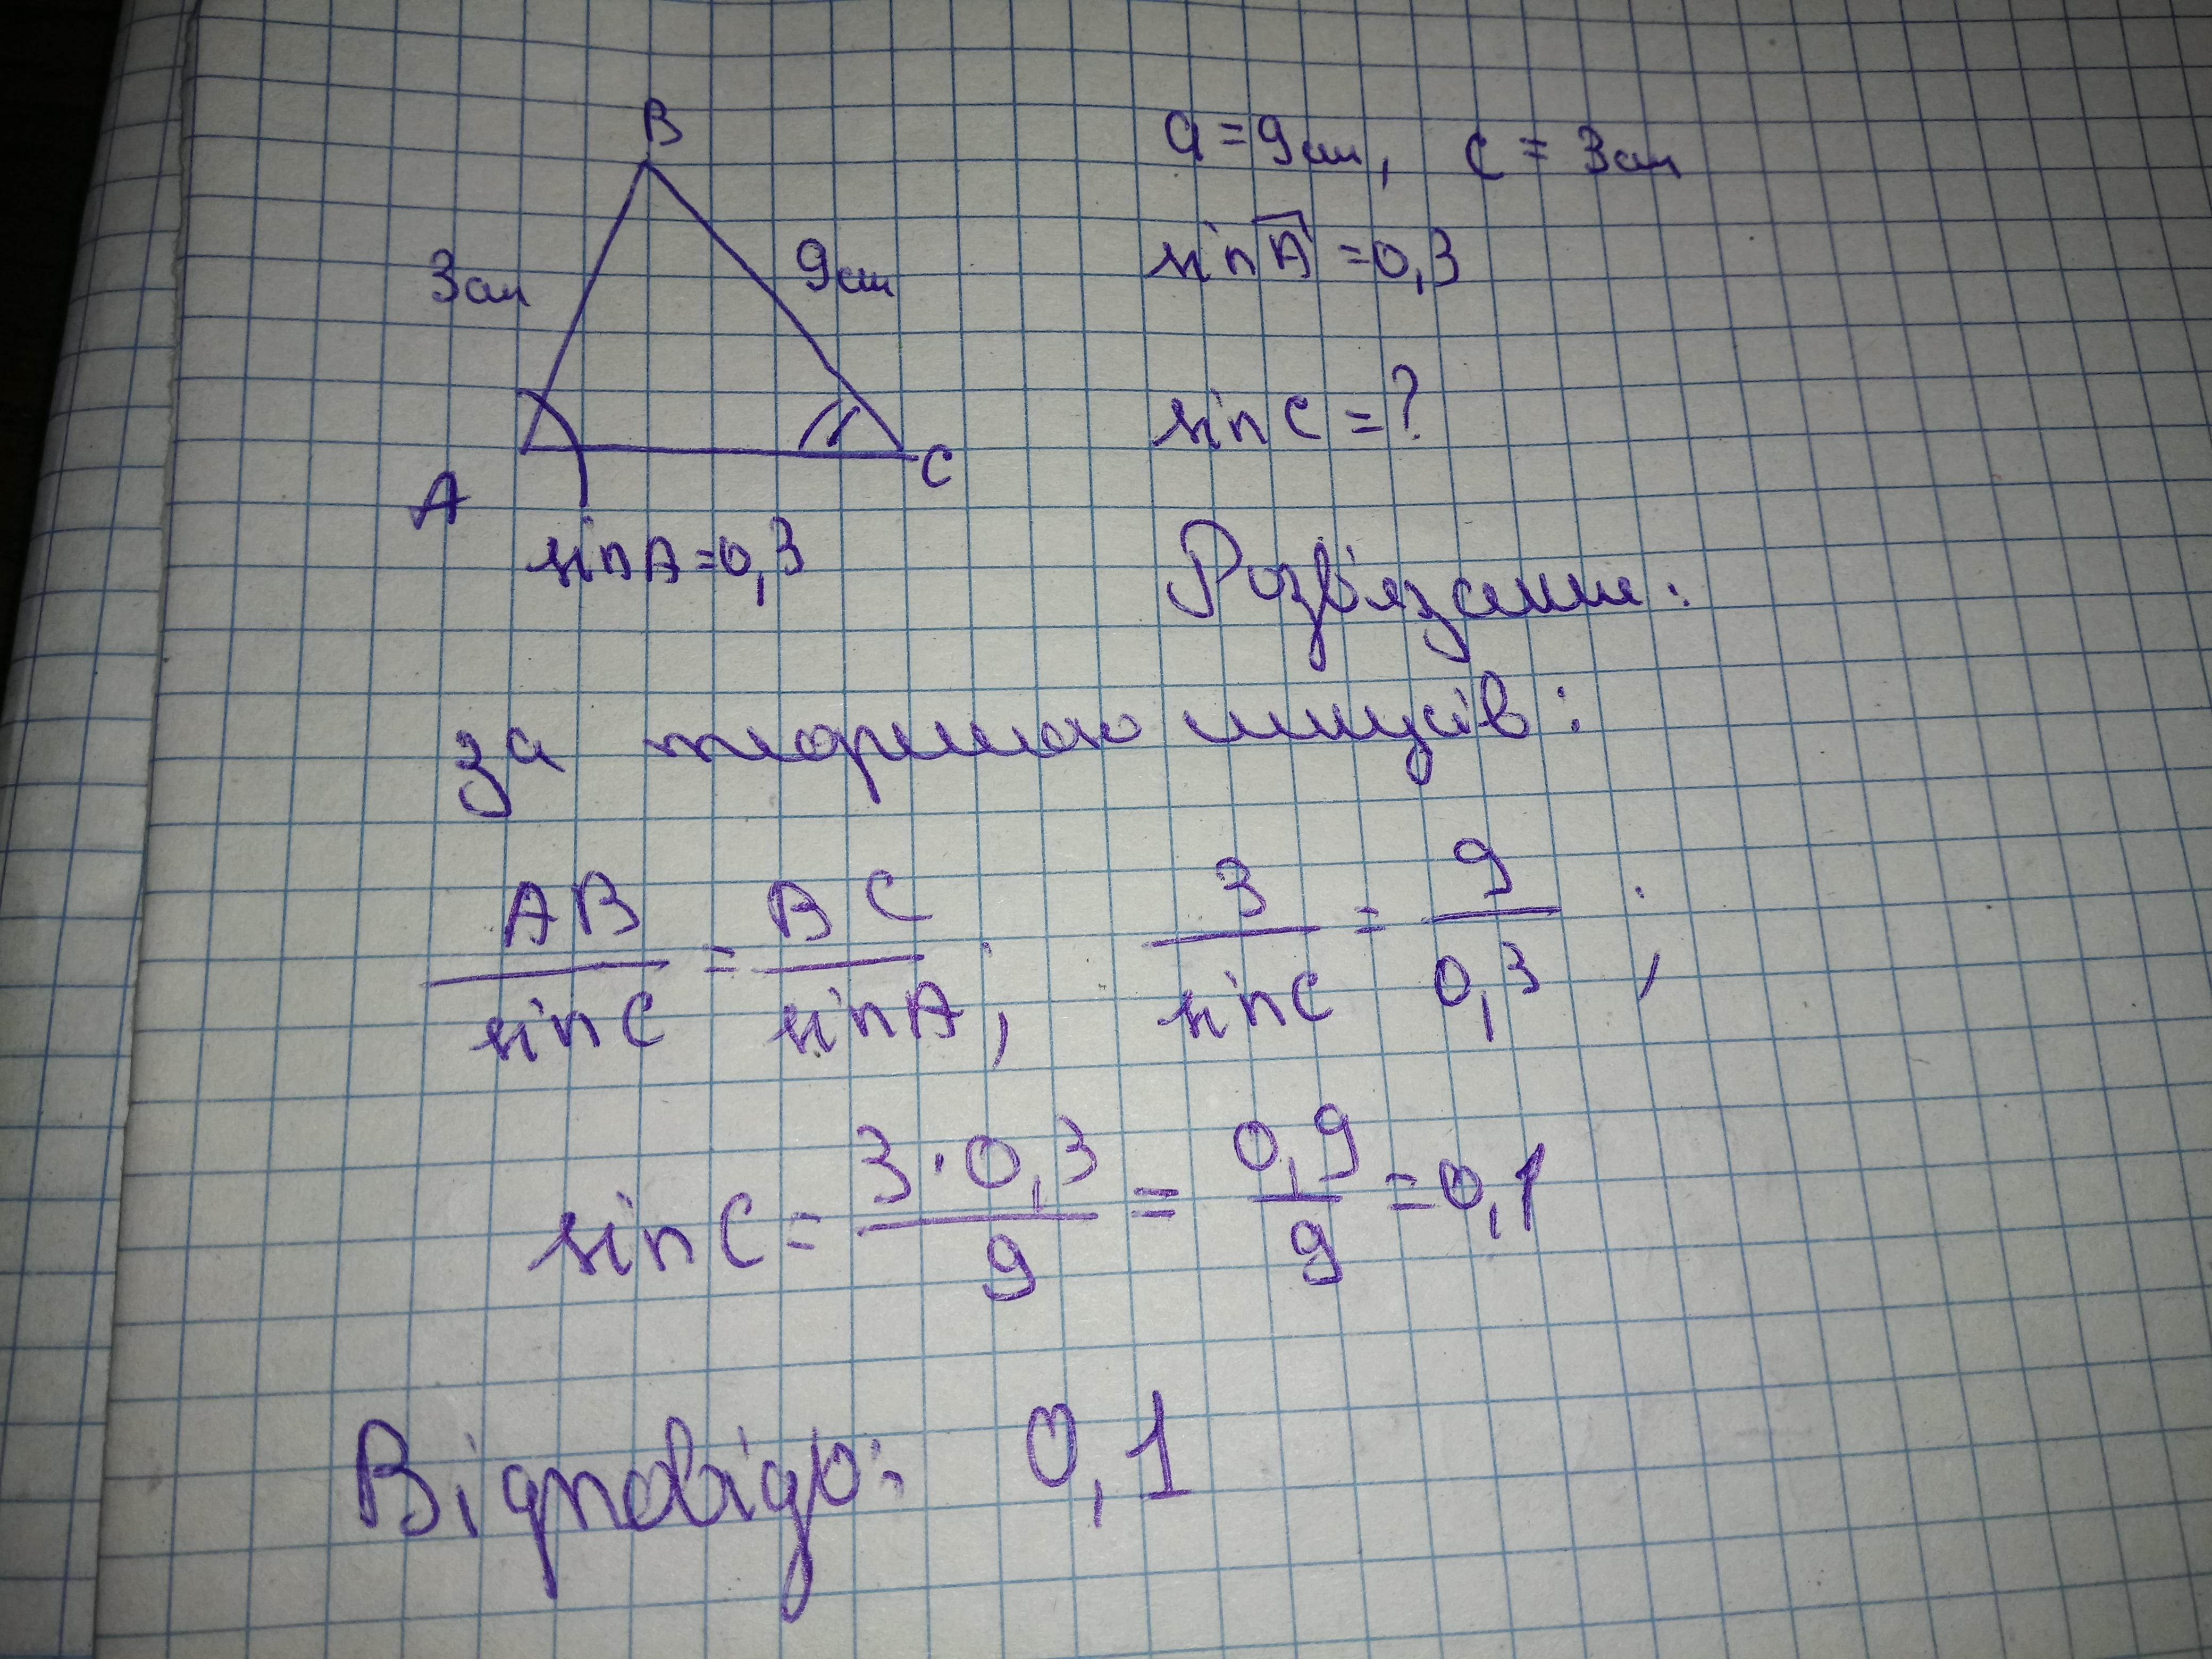 B
a = 9 см, c = 3 см
3 см
9 см
sin A = 0,3
sin C = ?
A
C
sin A = 0,3
Розв'язання:
за теоремою синусів:
AB/sin C = BC/sin A; 3/sin C = 9/0,3;
sin C = 3·0,3/9 = 0,9/9 = 0,1
Відповідь: 0,1